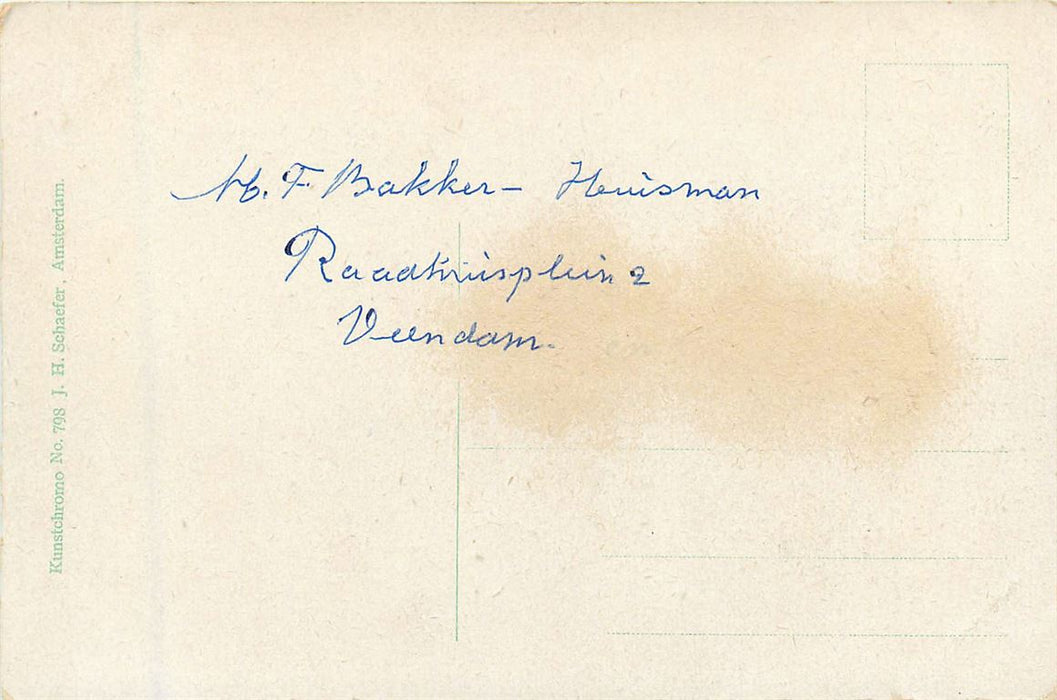 M. F. Bakker - Huisman
Raadhuisplein 2
Veendam.
Kunstchromo No. 798 J. H. Schaefer, Amsterdam.